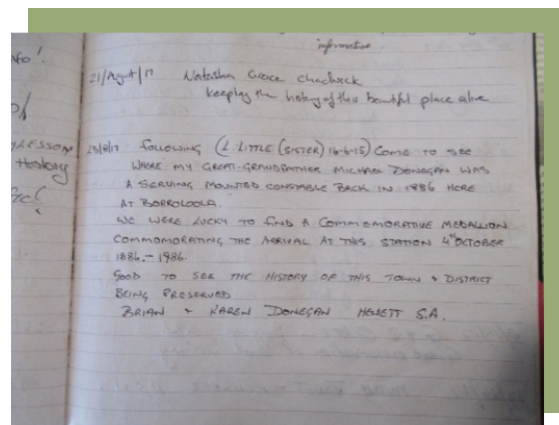 informative
nfo!
21/August/17 Natasha Grace Chadwick
keeping the history of this beautiful place alive
LESSON
History
23/8/17 FOLLOWING (L LITTLE (SISTER) 16-6-15) COME TO SEE
WHERE MY GREAT-GRANDFATHER MICHAEL DONEGAN WAS
A SERVING MOUNTED CONSTABLE BACK IN 1886 HERE
AT BORROLOOLA.
WE WERE LUCKY TO FIND A COMMEMORATIVE MEDALLION
COMMOMORATING THE ARRIVAL AT THIS STATION 4TH OCTOBER
1886. - 1986.
GOOD TO SEE THE HISTORY OF THIS TOWN & DISTRICT
BEING PRESERVED
BRIAN & KAREN DONEGAN HEWETT S.A.